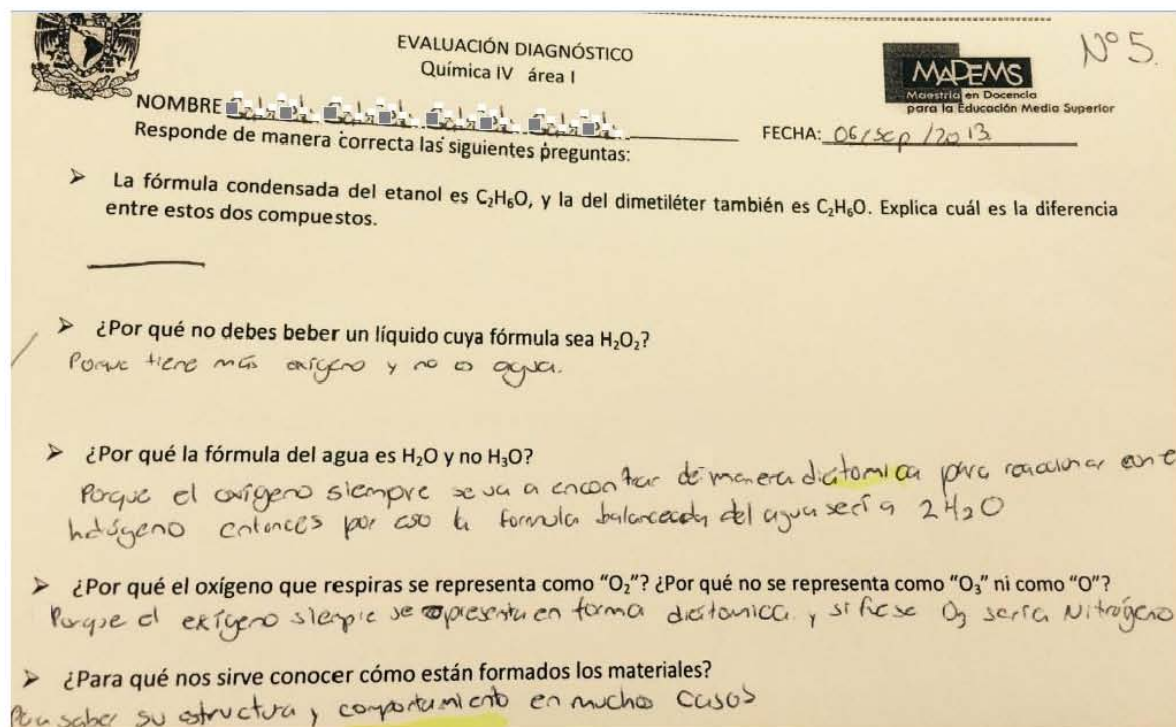 EVALUACIÓN DIAGNÓSTICO
Química IV área I
MADEMS
Maestría en Docencia
para la Educación Media Superior
Nº 5.
NOMBRE
FECHA: 06/sep/2013
Responde de manera correcta las siguientes preguntas:
➤ La fórmula condensada del etanol es C₂H₆O, y la del dimetiléter también es C₂H₆O. Explica cuál es la diferencia
entre estos dos compuestos.
➤ ¿Por qué no debes beber un líquido cuya fórmula sea H₂O₂?
Porque tiene más oxígeno y no es agua.
➤ ¿Por qué la fórmula del agua es H₂O y no H₃O?
Porque el oxígeno siempre se va a encontrar de manera diatomica para reaccionar con e
entonces por eso la formula balanceada del agua sería 2H₂O
➤ ¿Por qué el oxígeno que respiras se representa como "O₂"? ¿Por qué no se representa como "O₃" ni como "O"?
Porque el oxígeno siempre se representa en forma diatomica y si fuese O₃ sería Nitrógeno
➤ ¿Para qué nos sirve conocer cómo están formados los materiales?
Para saber su estructura y comportamiento en muchos casos